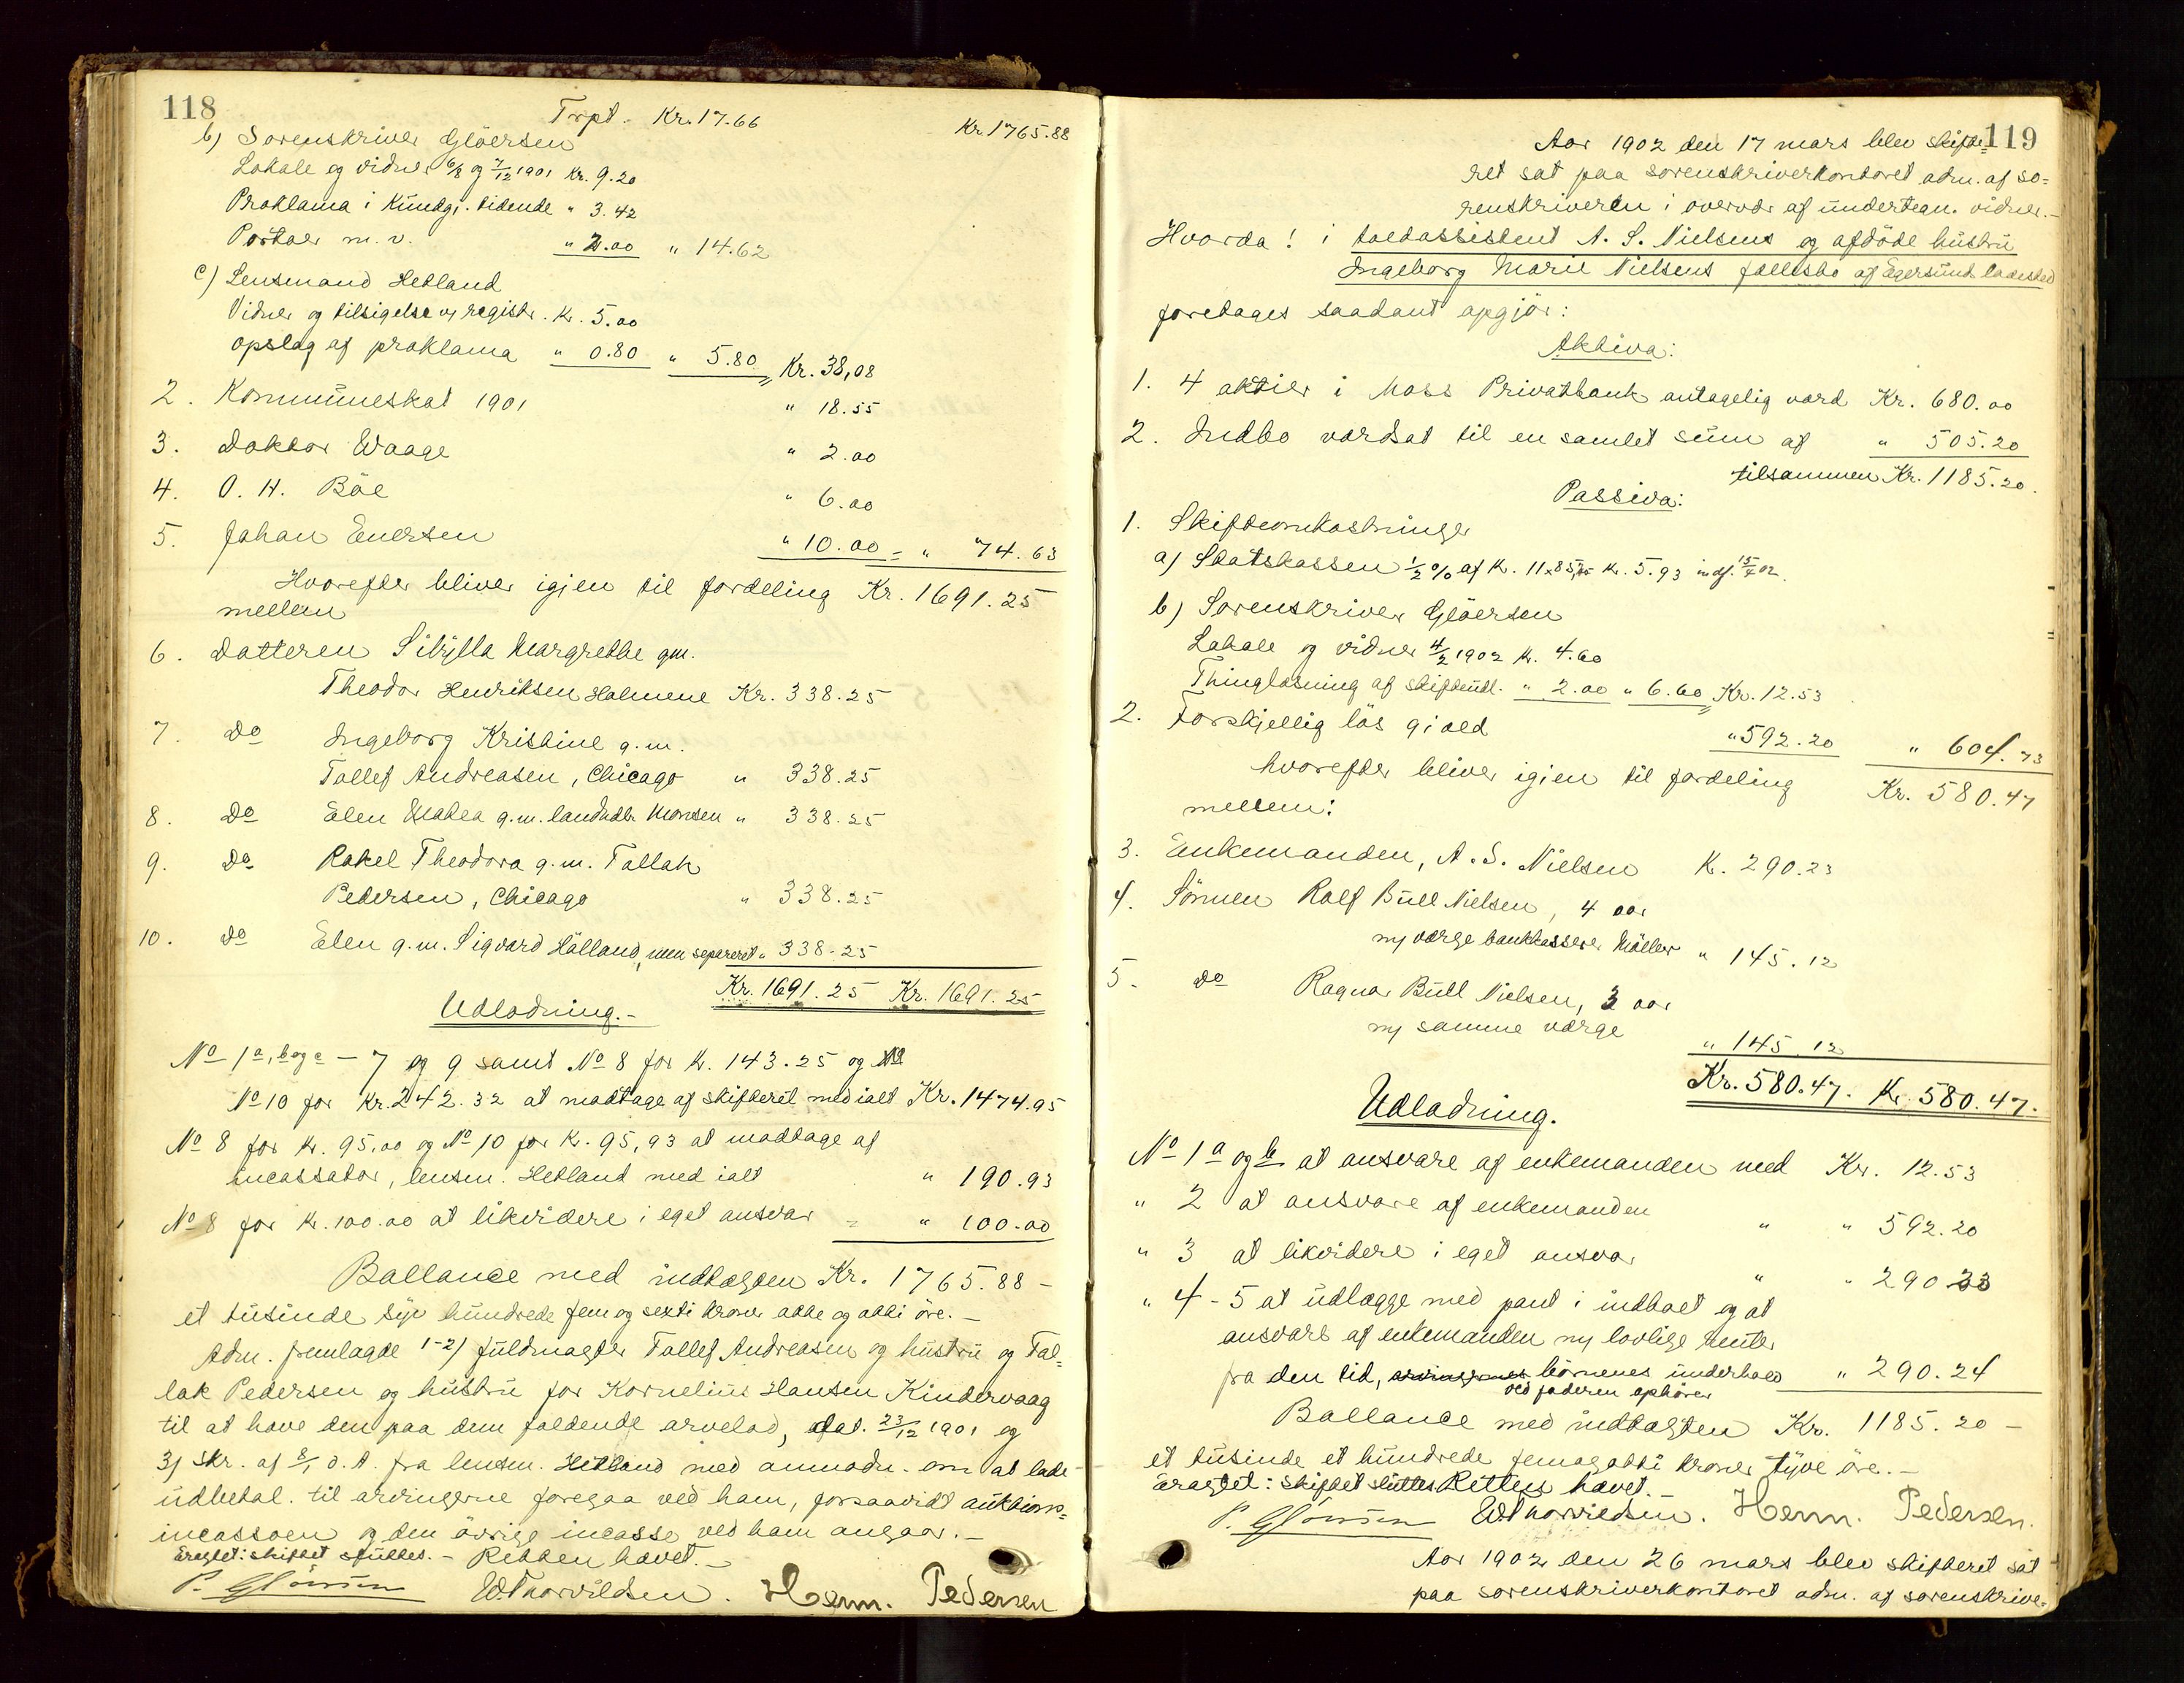 118
Trpt. Kr. 17.66 Kr. 1765.88
b) Sorenskriver Gloersen
Lokale og vidner 6/8 og 7/12 1901 Kr. 9.20
Proklama i Kundgj. tidende " 3.42
Portoer m. v. " 2.00 " 14.62
c) Lensmand Hetland
Vidner og tilsigelse v/ registr. Kr. 5.00
opslag af proklama " 0.80 " 5.80 Kr. 38,08
2. Kommuneskat 1901 " 18.55
3. Doktor Waage " 2.00
4. O. H. Böe " 6.00
5. Johan Enersen " 10.00 = " 74.63
Hvorefter bliver igjen til fordeling Kr. 1691.25
mellem
6. Datteren Sibylla Margrethe gm.
Theodor Henriksen Holmene Kr. 338.25
7. Do Ingeborg Kristine g.m.
Tollef Andreasen, Chicago " 338.25
8. Do Elen Malea g.m. landhdl. Monsen " 338.25
9. Do Rakel Theodora g.m. Tallak
Pedersen, Chicago " 338.25
10. Do Elen g.m. Sigvard Hålland, men separeret " 338.25
Kr. 1691.25 Kr. 1691.25
Udlodning.-
No 1 a, b og c - 7 og 9 samt No 8 for Kr. 143.25 og
No 10 for Kr. 242.32 at modtage af skifteret med ialt Kr. 1474.95
No 8 for Kr. 95.00 og No 10 for Kr. 95,93 at modtage af
incassator, lensm. Hetland med ialt " 190.93
No 8 for Kr. 100.00 at likvidere i eget ansvar = " 100.00
Ballance med indtægten Kr. 1765.88 -
et tusinde syv hundrede fem og sexti kroner otte og otti öre. -
Adm. fremlagde 1-2) fuldmagter Tollef Andreasen og hustru og Tal=
lak Pedersen og hustru for Kornelius Hansen Kindervaag
til at hæve den paa dem faldende arvelod, dat. 23/12 1901 og
3) skr. af 8/1 d. A. fra lensm. Hetland med anmodn. om at lade
udbetal. til arvingerne foregaa ved ham, forsaavidt auktions=
incassoen og den övrige incasso ved ham angaar. -
Eragtet: skiftet sluttes. - Retten hævet. -
P. Gloersen W. Thorvildsen. Herm. Pedersen
119
Aar 1902 den 17 mars blev skifte=
ret sat paa sorenskriverkontoret adm. af so=
renskriveren i overvær af undertegn. vidner. -
Hvorda! i toldassistent A. S. Nielsens og afdöde hustru
Ingeborg Marie Nielsens fællesbo af Egersund ladested
foretages saadant opgjör:
Aktiva:
1. 4 aktier i Moss Privatbank antagelig værd Kr. 680.00
2. Indbo værdsat til en samlet sum af " 505.20
tilsammen Kr. 1185.20.
Passiva:
1. Skifteomkostninger
a) Statskassen 1/2 % af Kr. 1185,20 Kr. 5.93 indf. 15/4 02.
b) Sorenskriver Glöersen
Lokale og vidner 4/2 1902 Kr. 4.60
Thinglæsning af skifteudl. " 2.00 " 6.60 Kr. 12.53
2. Forskjellig lös gjæld " 592.20 " 604.73
hvorefter bliver igjen til fordeling Kr. 580.47
mellem:
3. Enkemanden, A. S. Nielsen K. 290.23
4. Sönnen Rolf Bull Nielsen, 4 aar
m/ værge bankkasserer Möller " 145.12
5. Do Ragnar Bull Nielsen, 3 aar
m/ samme værge " 145.12
Kr. 580.47. Kr. 580.47.
Udlodning.
No 1 a og b at ansvare af enkemanden med Kr. 12.53
" 2 at ansvare af enkemanden " " 592.20
" 3 at likvidere i eget ansvar " " 290.23
" 4 - 5 at udlægge med pant i indboet og at
ansvare af enkemanden m/ lovlige renter
fra den tid, arvingernes börnenes underhold " 290.24
ved faderen ophörer
Ballance med indtægten Kr. 1185.20 -
et tusinde et hundrede femogotti kroner tyve öre. -
Eragtet: skiftet sluttes Retten hævet. -
P. Gloersen W. Thorvildsen. Herm. Pedersen.
Aar 1902 den 26 mars blev skifteret sat
paa sorenskriverkontoret adm. af sorenskrive=